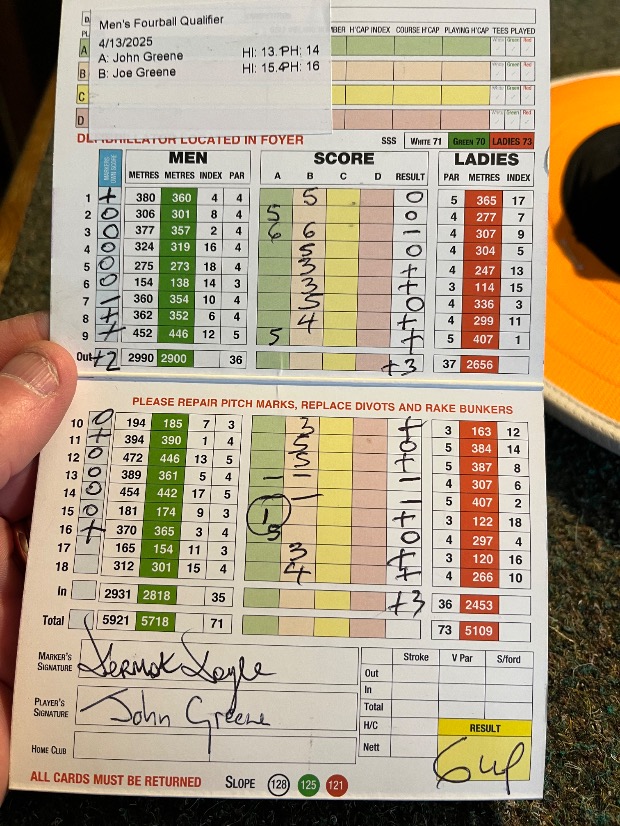 Men's Fourball Qualifier
4/13/2025
A: John Greene HI: 13.1 PH: 14
B: Joe Greene HI: 15.4 PH: 16
H'CAP INDEX COURSE H'CAP PLAYING H'CAP TEES PLAYED
White Green Red
A
B
C
D
LOCATED IN FOYER SSS WHITE 71 GREEN 70 LADIES 73
MARKERS OWN SCORE MEN SCORE LADIES
METRES METRES INDEX PAR A B C D RESULT PAR METRES INDEX
1 + 380 360 4 4 5 0 5 365 17
2 0 306 301 8 4 5 0 4 277 7
3 0 377 357 2 4 6 6 – 4 307 9
4 0 324 319 16 4 5 0 4 304 5
5 0 275 273 18 4 3 + 4 247 13
6 0 154 138 14 3 3 + 3 114 15
7 – 360 354 10 4 5 0 4 336 3
8 + 362 352 6 4 4 + 4 299 11
9 + 452 446 12 5 5 + 5 407 1
Out +2 2990 2900 36 +3 37 2656
PLEASE REPAIR PITCH MARKS, REPLACE DIVOTS AND RAKE BUNKERS
10 0 194 185 7 3 3 + 3 163 12
11 + 394 390 1 4 5 0 5 384 14
12 0 472 446 13 5 5 + 5 387 8
13 0 389 361 5 4 – – – 4 307 6
14 0 454 442 17 5 – – 5 407 2
15 0 181 174 9 3 1 + 3 122 18
16 + 370 365 3 4 5 0 4 297 4
17 165 154 11 3 3 + 3 120 16
18 312 301 15 4 4 + 4 266 10
In 2931 2818 35 +3 36 2453
Total 5921 5718 71 73 5109
MARKER'S SIGNATURE Dermot Doyle
PLAYER'S SIGNATURE John Greene
HOME CLUB
Stroke V Par S/ford
Out
In
Total
H/C RESULT
Nett 6 up
ALL CARDS MUST BE RETURNED SLOPE 128 125 121